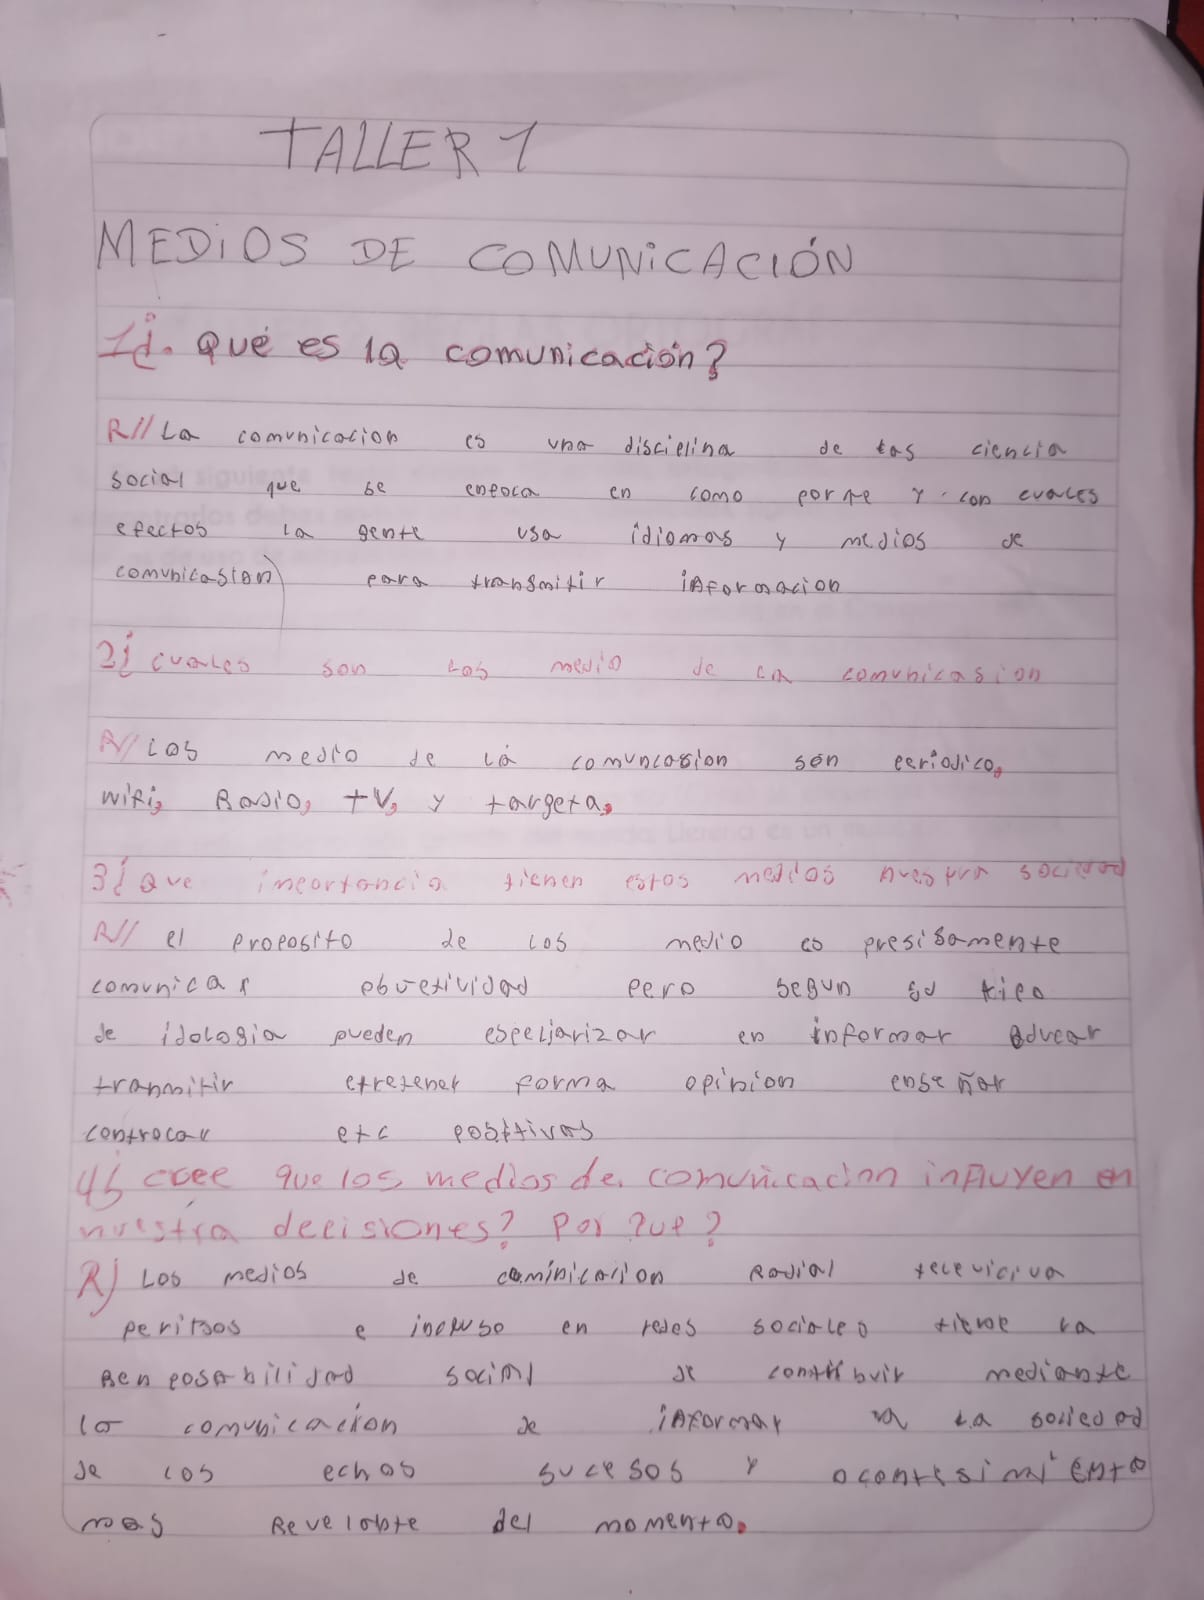 TALLER 1
MEDiOS DE COMUNiCACIÓN
1¿. Qué es la comunicación?
R// La comunicacion es una discielina de las ciencia
social que se enfoca en como porqe y con cuales
efectos la gente usa idiomas y medios de
comunicasion para transmitir informacion
2¿ cuales son Los medio de La comunicasion
R// Los medio de la comuncasion son eeriodico,
wifi, Radio, tV, y targeta.
3¿ Que imeortancia tienen estos medios nuestra sociedad
R// el proposito de Los medio es presisamente
comunicar obvetividad pero segun su tieo
de idologia pueden espeljarizar en informar educar
tranmitir etretener forma opinion enseñar
controcar etc positivos
4¿ cree que los medios de comunicacion influyen en
nuestra decisiones? Por que?
R) Los medios de cominicacion Radial televiciva
peritsos e incluso en redes sociales tiene la
Renposabilidad social de contribuir mediante
la comunicacion de informar a La sociedad
de Los echos sucesos y acontesimiento
mas Revelabte del momento.